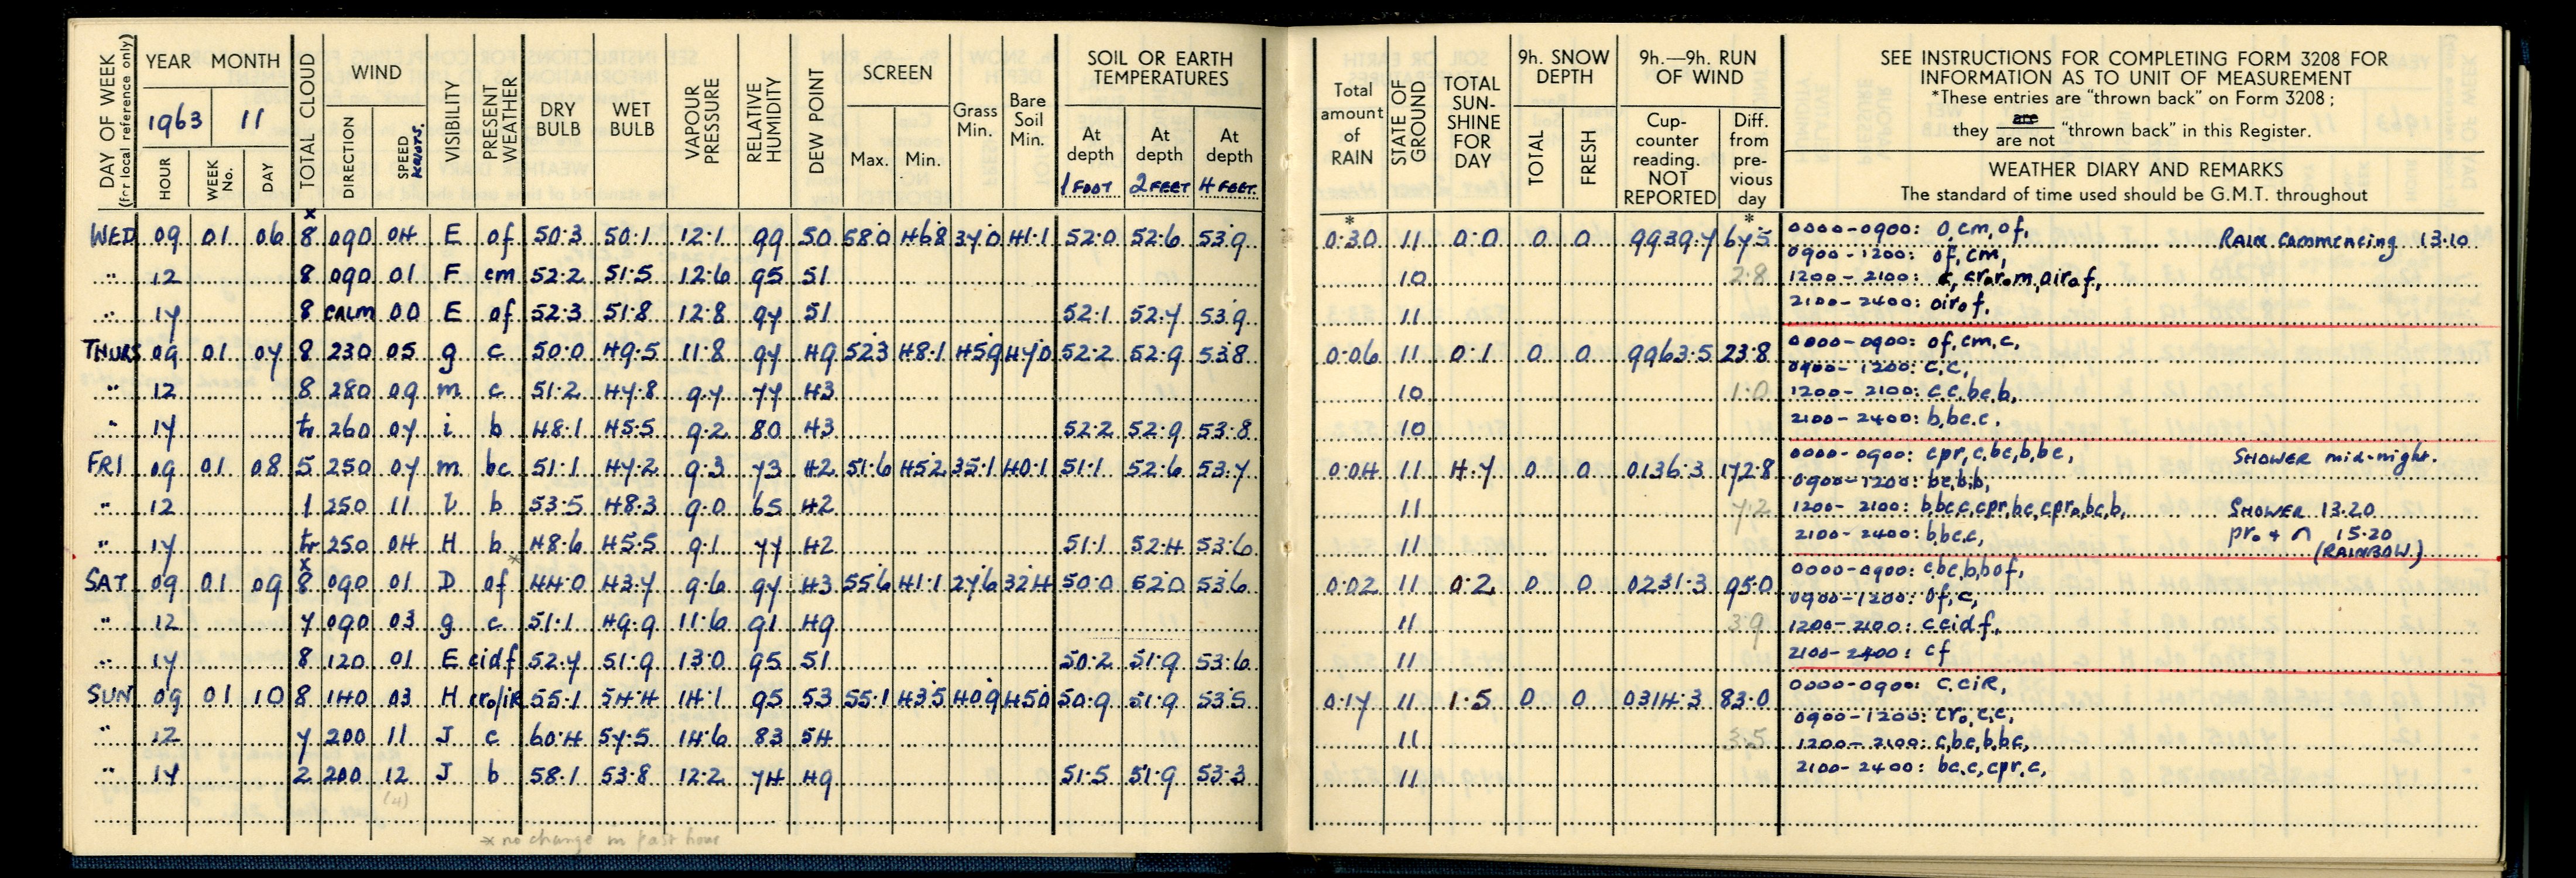 DAY OF WEEK (for local reference only) YEAR MONTH TOTAL CLOUD WIND VISIBILITY PRESENT WEATHER DRY BULB WET BULB VAPOUR PRESSURE RELATIVE HUMIDITY DEW POINT SCREEN Grass Min. Bare Soil Min. SOIL OR EARTH TEMPERATURES
1963 11
HOUR WEEK No. DAY DIRECTION SPEED KNOTS. Max. Min. At depth 1 FOOT At depth 2 FEET At depth 4 FEET
x
WED 09 01 06 8 090 04 E of 50.3 50.1 12.1 99 50 58.0 46.8 37.0 41.1 52.0 52.6 53.9
" 12 8 090 01 F cm 52.2 51.5 12.6 95 51
" 17 8 CALM 00 E of 52.3 51.8 12.8 97 51 52.1 52.7 53.9
THURS 09 01 07 8 230 05 g c 50.0 49.5 11.8 97 49 52.3 48.1 45.9 47.0 52.2 52.9 53.8
" 12 8 280 09 m c 51.2 47.8 9.7 77 43
" 17 tr 260 07 i b 48.1 45.5 9.2 80 43 52.2 52.9 53.8
FRI 09 01 08 5 250 07 m bc 51.1 47.2 9.3 73 42 51.6 45.2 35.1 40.1 51.1 52.6 53.7
" 12 1 250 11 b 53.5 48.3 9.0 65 42
" 17 tr 250 04 H b 48.6 45.5 9.1 77 42 51.1 52.4 53.6
x *
SAT 09 01 09 8 090 01 D of 44.0 43.7 9.6 97 43 55.6 41.1 27.6 32.4 50.0 52.0 53.6
" 12 7 090 03 g c 51.1 49.9 11.6 91 49
" 17 8 120 01 E cidf 52.7 51.9 13.0 95 51 50.2 51.9 53.6
SUN 09 01 10 8 140 03 H cro/iR 55.1 54.4 14.1 95 53 55.1 43.5 40.9 45.0 50.9 51.9 53.5
" 12 7 200 11 J c 60.4 57.5 14.6 83 54
" 17 2 200 12 J b 58.1 53.8 12.2 74 49 51.5 51.9 53.3
(4)
* no change in past hour
Total amount of RAIN STATE OF GROUND TOTAL SUN-SHINE FOR DAY 9h. SNOW DEPTH 9h.—9h. RUN OF WIND
TOTAL FRESH Cup-counter reading. NOT REPORTED Diff. from pre-vious day
SEE INSTRUCTIONS FOR COMPLETING FORM 3208 FOR
INFORMATION AS TO UNIT OF MEASUREMENT
*These entries are "thrown back" on Form 3208 ;
they are / are not "thrown back" in this Register.
WEATHER DIARY AND REMARKS
The standard of time used should be G.M.T. throughout
* *
0.30 11 0.0 0 0 9939.7 67.5 0000-0900: O,cm,of, RAIN commencing 13.10
0900-1200: of,cm,
10 2.8 1200-2100: c, crorom,oirof,
2100-2400: oirof,
11
0.06 11 0.1 0 0 9963.5 23.8 0000-0900: of,cm,c,
0900-1200: c,c,
10 1.0 1200-2100: c,c,bc,b,
2100-2400: b,bc,c,
10
0.04 11 4.7 0 0 0136.3 172.8 0000-0900: cpr,c,bc,b,bc, SHOWER mid-night.
0900-1200: bc,b,b,
11 7.2 1200-2100: b,bc,c,cpr,bc,cpro,bc,b, SHOWER 13.20
11 2100-2400: b,bc,c, pro + ∩ 15.20
(RAINBOW)
0.02 11 0.2 0 0 0231.3 95.0 0000-0900: c,bc,b,bof,
0900-1200: of,c,
11 3.9 1200-2100: c cidf,
11 2100-2400: cf
0.17 11 1.5 0 0 0314.3 83.0 0000-0900: c,ciR,
0900-1200: cro,c,c,
11 3.5 1200-2100: c,bc,b,bc,
11 2100-2400: bc,c,cpr,c,